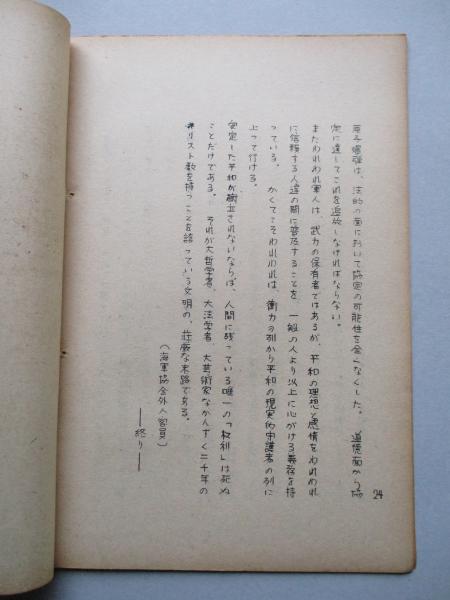 原子爆弾は、法的の面において協定の可能性を全くなくした。 道徳面から協
定に達してこれを追放しなければならない。
またわれわれ軍人は、武力の保有者ではあるが、平和の理想と感情をわれわれ
に信頼する人達の間に普及することを、一般の人より以上に心がける義務を持
っている。 かくてこそわれわれは、衝力の列から平和の現実的守護者の列に
上って行ける。
安定した平和が樹立されないならば、人間に残っている唯一の「权利」は死ぬ
ことだけである。 それが大哲学者、大法学者、大芸術家なかんずく二千年の
キリスト教を持つことを誇っている文明の、荘厳な末路である。
(海軍協会外人客員)
——終り——
24